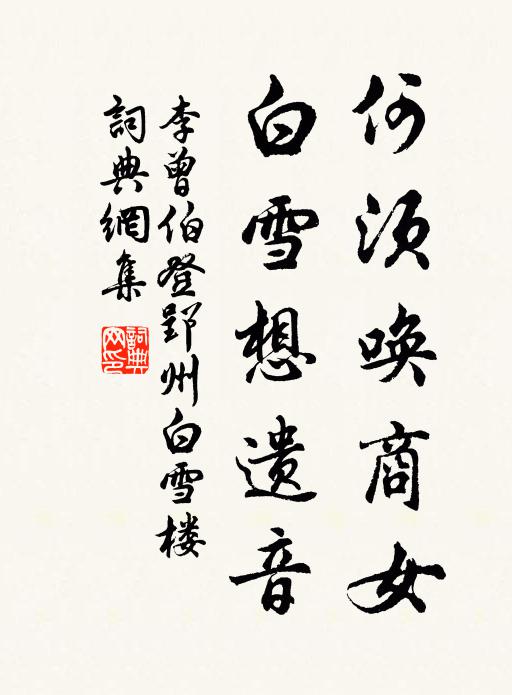 何須喚商女
白雪想遺音
李曾伯登郢州白雪楼
詞典網集
詞典网印